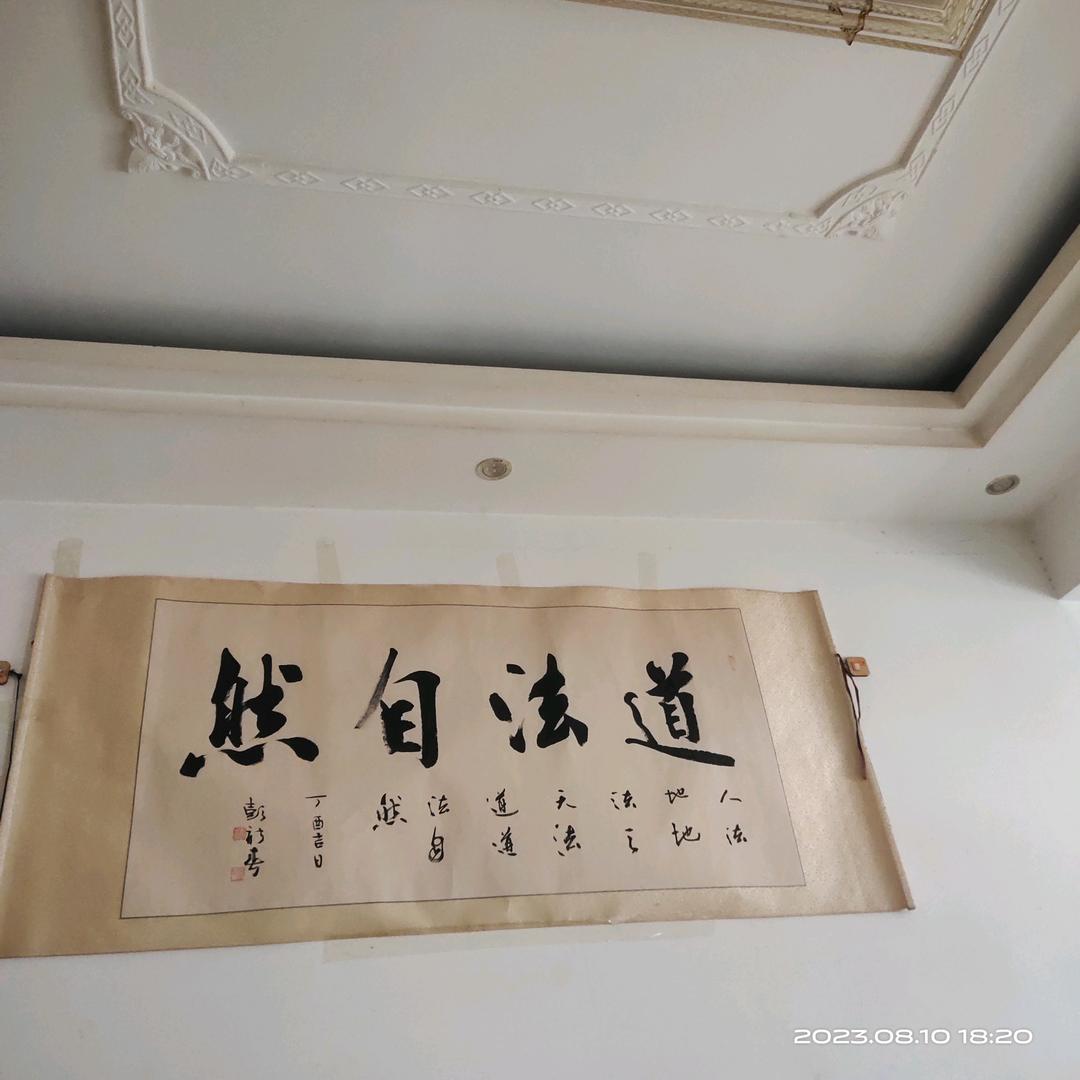 道法自然
人法
地地
法天
天法
道道
法自
然
丁酉吉日
彭
2023.08.10 18:20